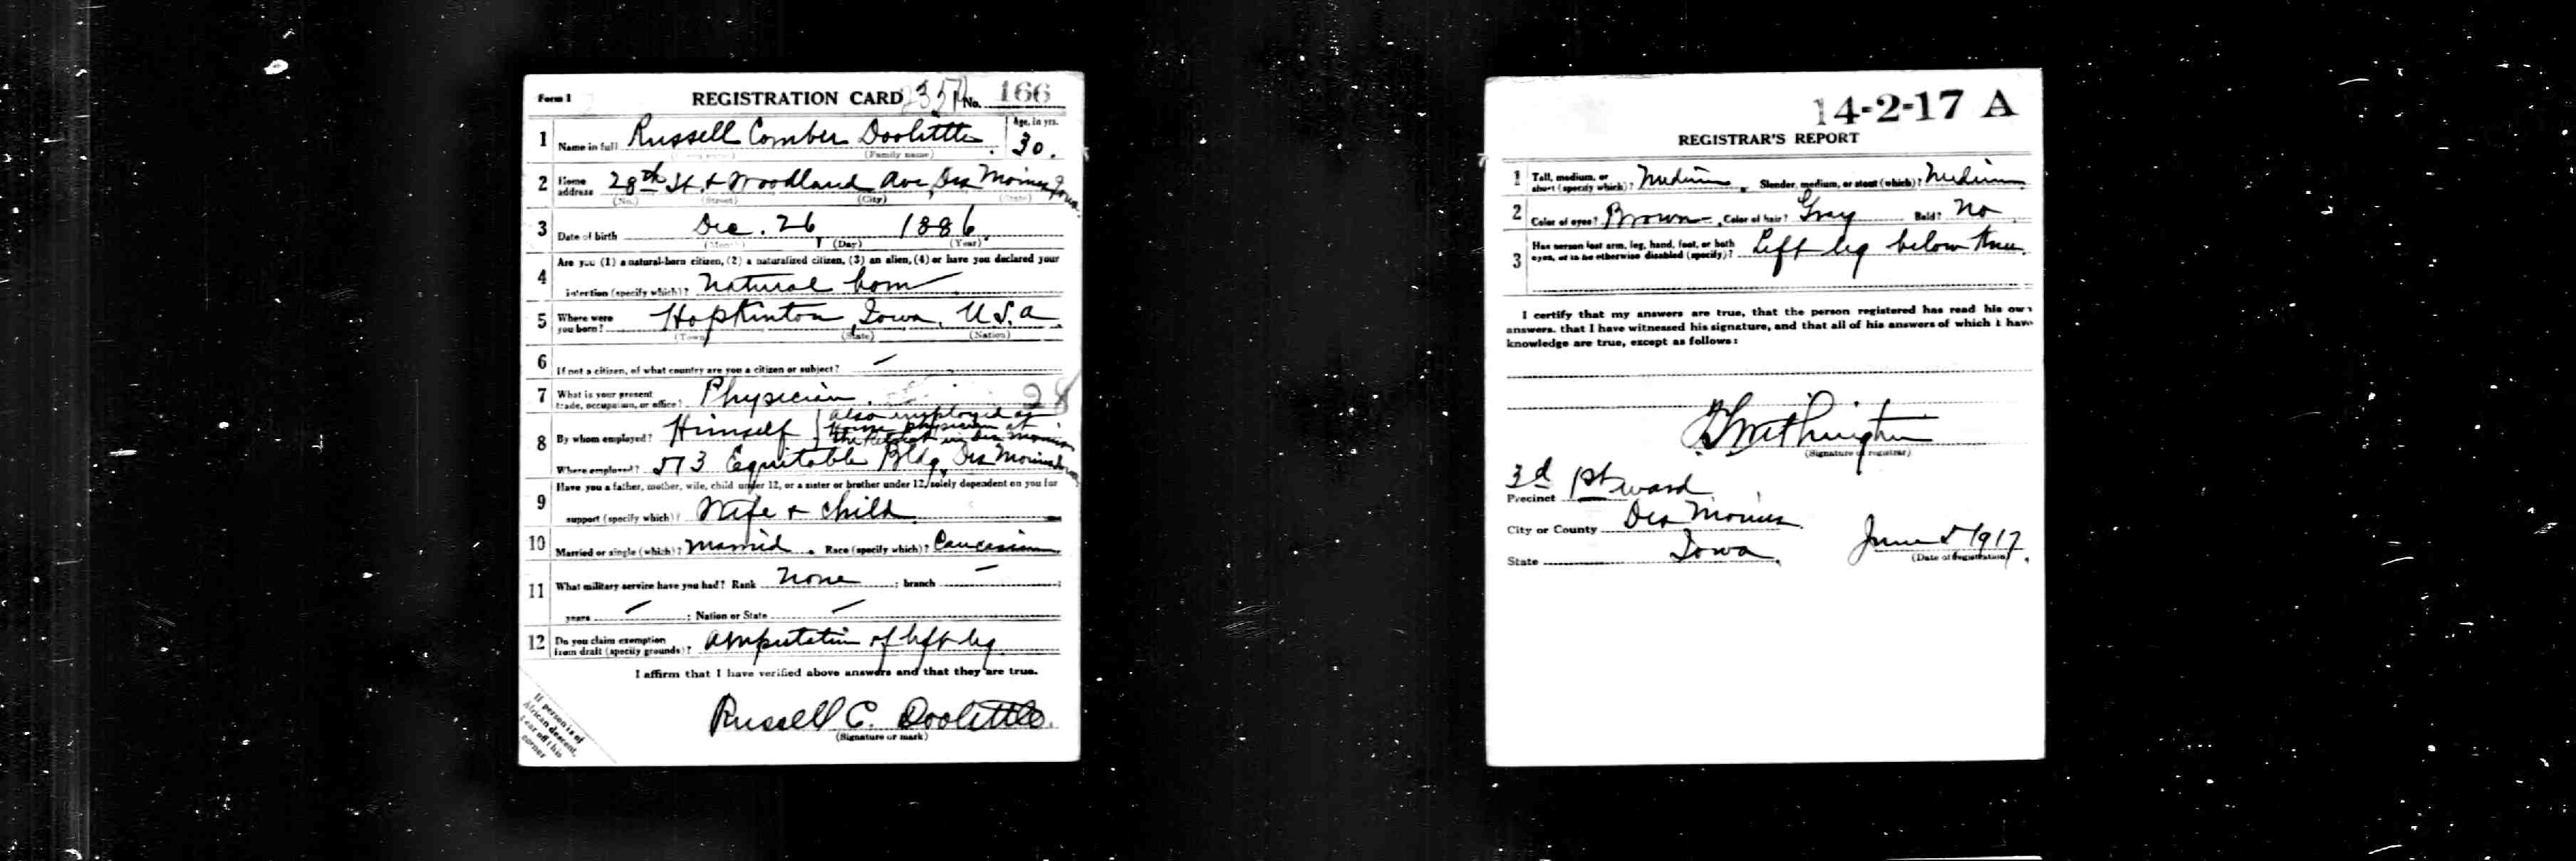 Form 1 REGISTRATION CARD No. 166
1 Name in full Russell Comber Doolittle. Age, in yrs. 30.
(Family name)
2 Home address 28th St. & Woodland Ave, Des Moines Iowa.
(No.) (Street) (City) (State)
3 Date of birth Dec. 26 1886
(Month) (Day) (Year)
4 Are you (1) a natural-born citizen, (2) a naturalized citizen, (3) an alien, (4) or have you declared your
intention (specify which)? Natural born
5 Where were you born? Hopkinton, Iowa, U.S.A.
(Town) (State) (Nation)
6 If not a citizen, of what country are you a citizen or subject? –
7 What is your present trade, occupation, or office? Physician. 28
8 By whom employed? Himself also employed as House physician at the Retreat in Des Moines
Where employed? 513 Equitable Bldg, Des Moines Iowa
9 Have you a father, mother, wife, child under 12, or a sister or brother under 12, solely dependent on you for
support (specify which)? Wife & child
10 Married or single (which)? Married. Race (specify which)? Caucasian
11 What military service have you had? Rank None ; branch – ;
years – ; Nation or State –
12 Do you claim exemption from draft (specify grounds)? Amputation of left leg
I affirm that I have verified above answers and that they are true.
Russell C. Doolittle.
(Signature or mark)
If person is of
African descent,
tear off this
corner
14-2-17 A
REGISTRAR'S REPORT
1 Tall, medium, or short (specify which)? Medium. Slender, medium, or stout (which)? Medium
2 Color of eyes? Brown Color of hair? Gray Bald? No
3 Has person lost arm, leg, hand, foot, or both eyes, or is he otherwise disabled (specify)? Left leg below knee.
I certify that my answers are true, that the person registered has read his own
answers, that I have witnessed his signature, and that all of his answers of which I have
knowledge are true, except as follows:
(Signature of registrar)
Precinct 3d 1st ward
City or County Des Moines
State Iowa June 5 1917.
(Date of registration)